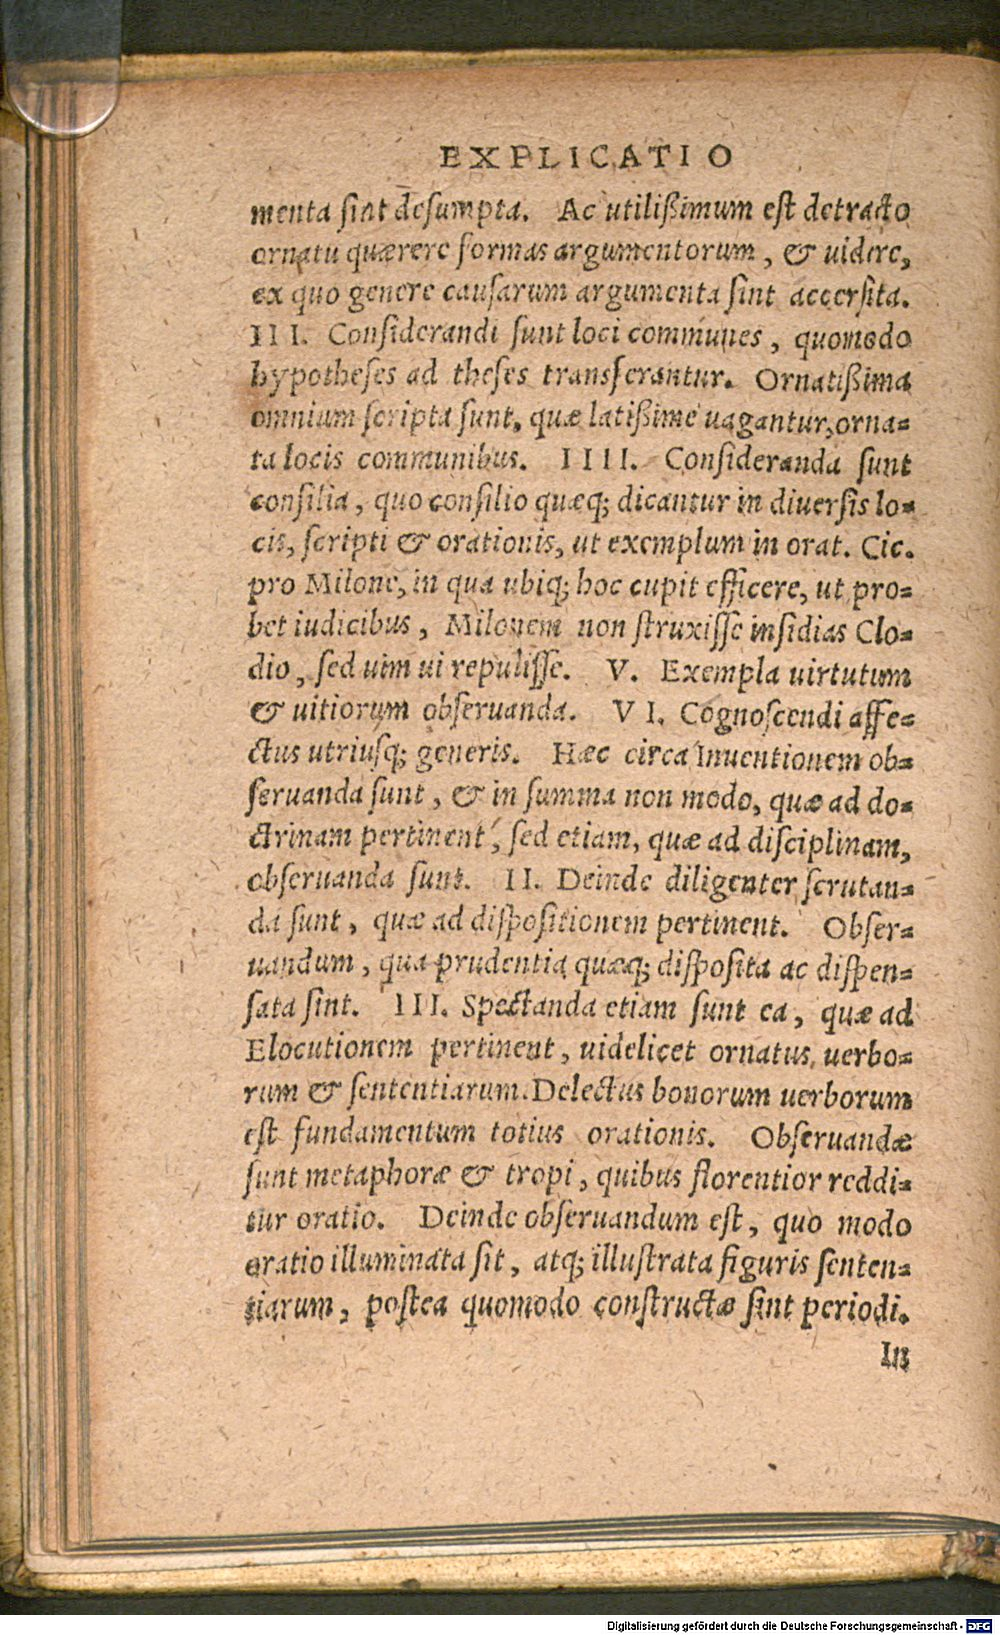 EXPLICATIO
menta sint desumpta. Ac utilißimum est detracto
ornatu quærere formas argumentorum, & uidere,
ex quo genere causarum argumenta sint accersita.
III. Considerandi sunt loci communes, quomodo
hypotheses ad theses transferantur. Ornatißima
omnium scripta sunt, quæ latißime uagantur, orna-
ta locis communibus. IIII. Consideranda sunt
consilia, quo consilio quæq; dicantur in diuersis lo-
cis, scripti & orationis, ut exemplum in orat. Cic.
pro Milone, in qua ubiq; hoc cupit efficere, ut pro-
bet iudicibus, Milonem non struxisse insidias Clo-
dio, sed uim ui repulisse. V. Exempla uirtutum
& uitiorum obseruanda. VI. Cognoscendi affe-
ctus utriusq; generis. Hæc circa Inuentionem ob-
seruanda sunt, & in summa non modo, quæ ad do-
ctrinam pertinent, sed etiam, quæ ad disciplinam,
obseruanda sunt. II. Deinde diligenter scrutan-
da sunt, quæ ad dispositionem pertinent. Obser-
uandum, qua prudentia quæq; disposita ac dispen-
sata sint. III. Spectanda etiam sunt ea, quæ ad
Elocutionem pertinent, uidelicet ornatus, uerbo-
rum & sententiarum. Delectus bonorum uerborum
est fundamentum totius orationis. Obseruandæ
sunt metaphoræ & tropi, quibus florentior reddi-
tur oratio. Deinde obseruandum est, quo modo
oratio illuminata sit, atq; illustrata figuris senten-
tiarum, postea quomodo constructæ sint periodi.
In
Digitalisierung gefördert durch die Deutsche Forschungsgemeinschaft - DFG